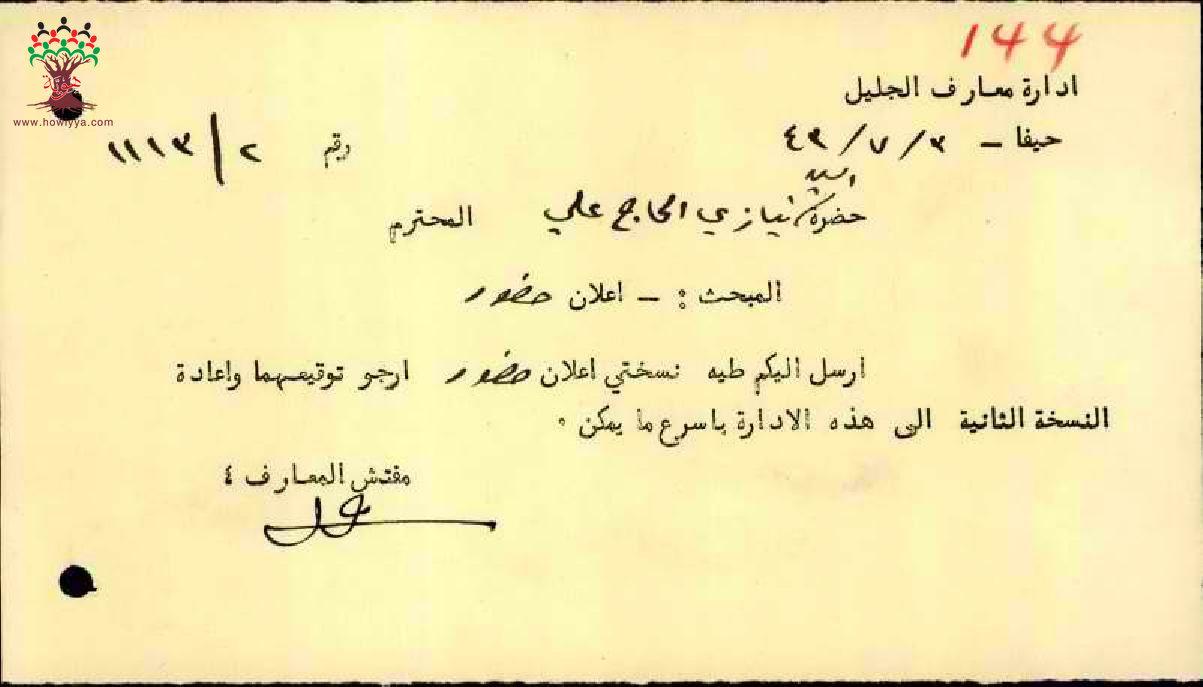 144
ادارة معارف الجليل
حيفا - ٤٣/٧/٣
رقم ٢/١١١٣
السيد
حضرة نيازي الحاج علي المحترم
المبحث : - اعلان حضور
ارسل اليكم طيه نسختي اعلان حضور ارجو توقيعهما واعادة
النسخة الثانية الى هذه الادارة باسرع ما يمكن ٠
مفتش المعارف ٤
www.howiyya.com